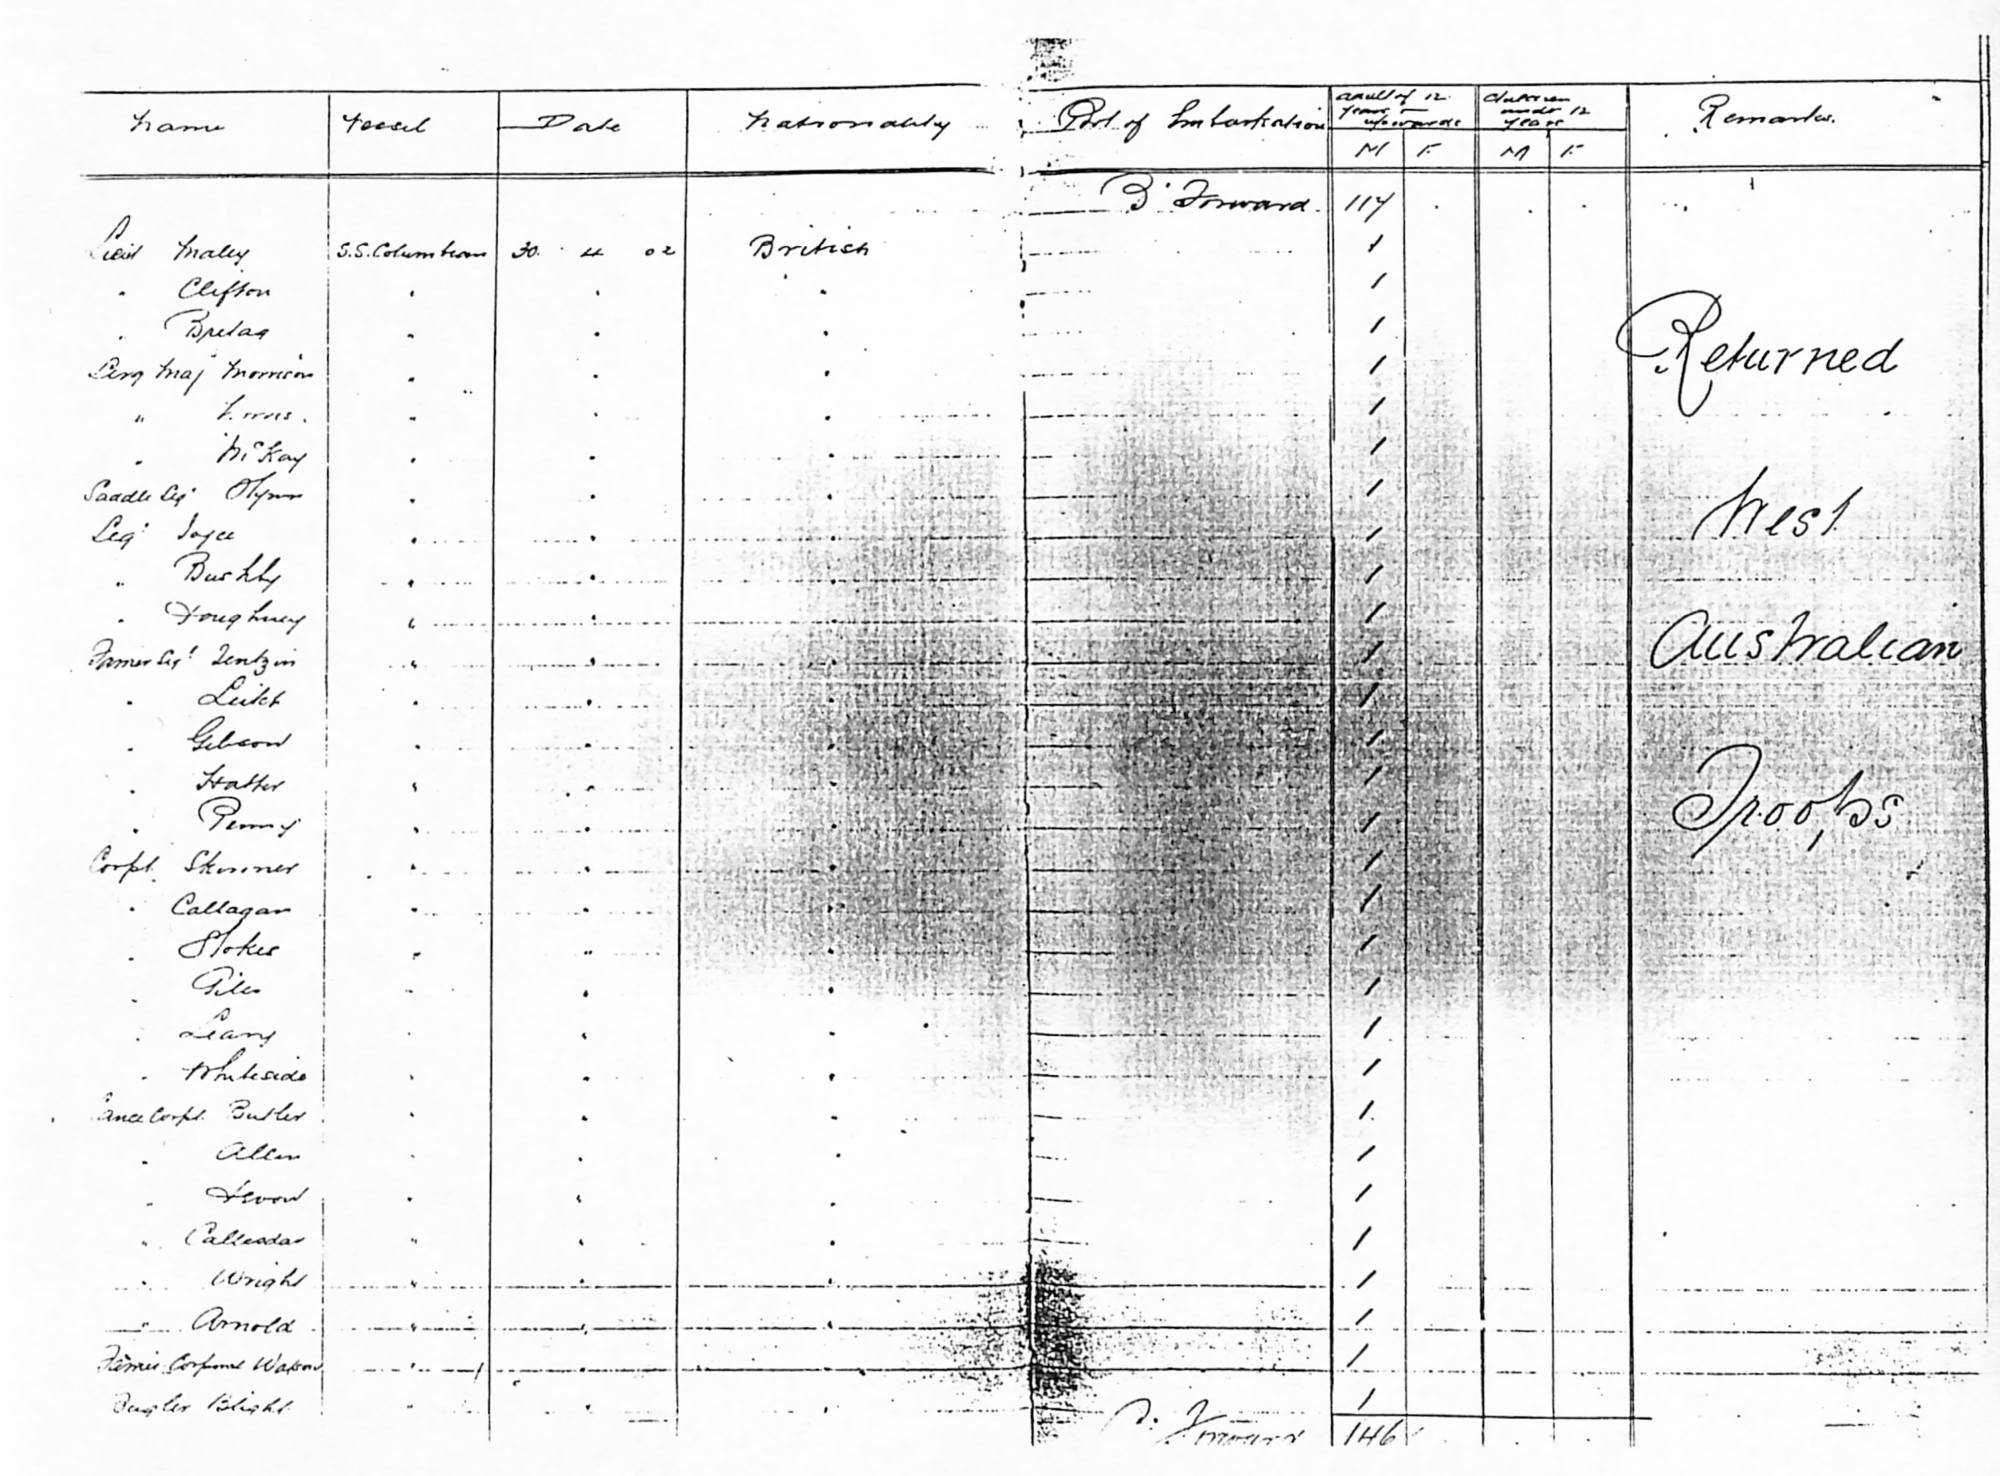 Name Vessel Date Nationality Port of Embarkation Adults of 12 years upwards M F Children under 12 years M F Remarks.
B' Forward 117
Lieut Maley S.S. Columbian 30. 4 02 British 1
" Clifton " " " 1
" Bretag " " " 1
Serg Maj Morrison " " " 1
" " " " 1
" McKay " " " 1
Saddle Sgt " " " 1
Sgt Joyce " " " 1
" Bushby " " " 1
" Doughney " " " 1
Farrier Sgt " " " 1
" Leitch " " " 1
" Gibson " " " 1
" " " " 1
" Penny " " " 1
Corpl. Skinner " " " 1
" Callagan " " " 1
" Stokes " " " 1
" Giles " " " 1
" Leary " " " 1
" Whiteside " " " 1
Lance Corpl. Butler " " " 1
" Allen " " " 1
" " " " 1
" " " " 1
" Wright " " " 1
" Arnold " " " 1
Corporal Watson " " " 1
Bugler Blight " " " 1
Forward 146
Returned
West
Australian
Troops